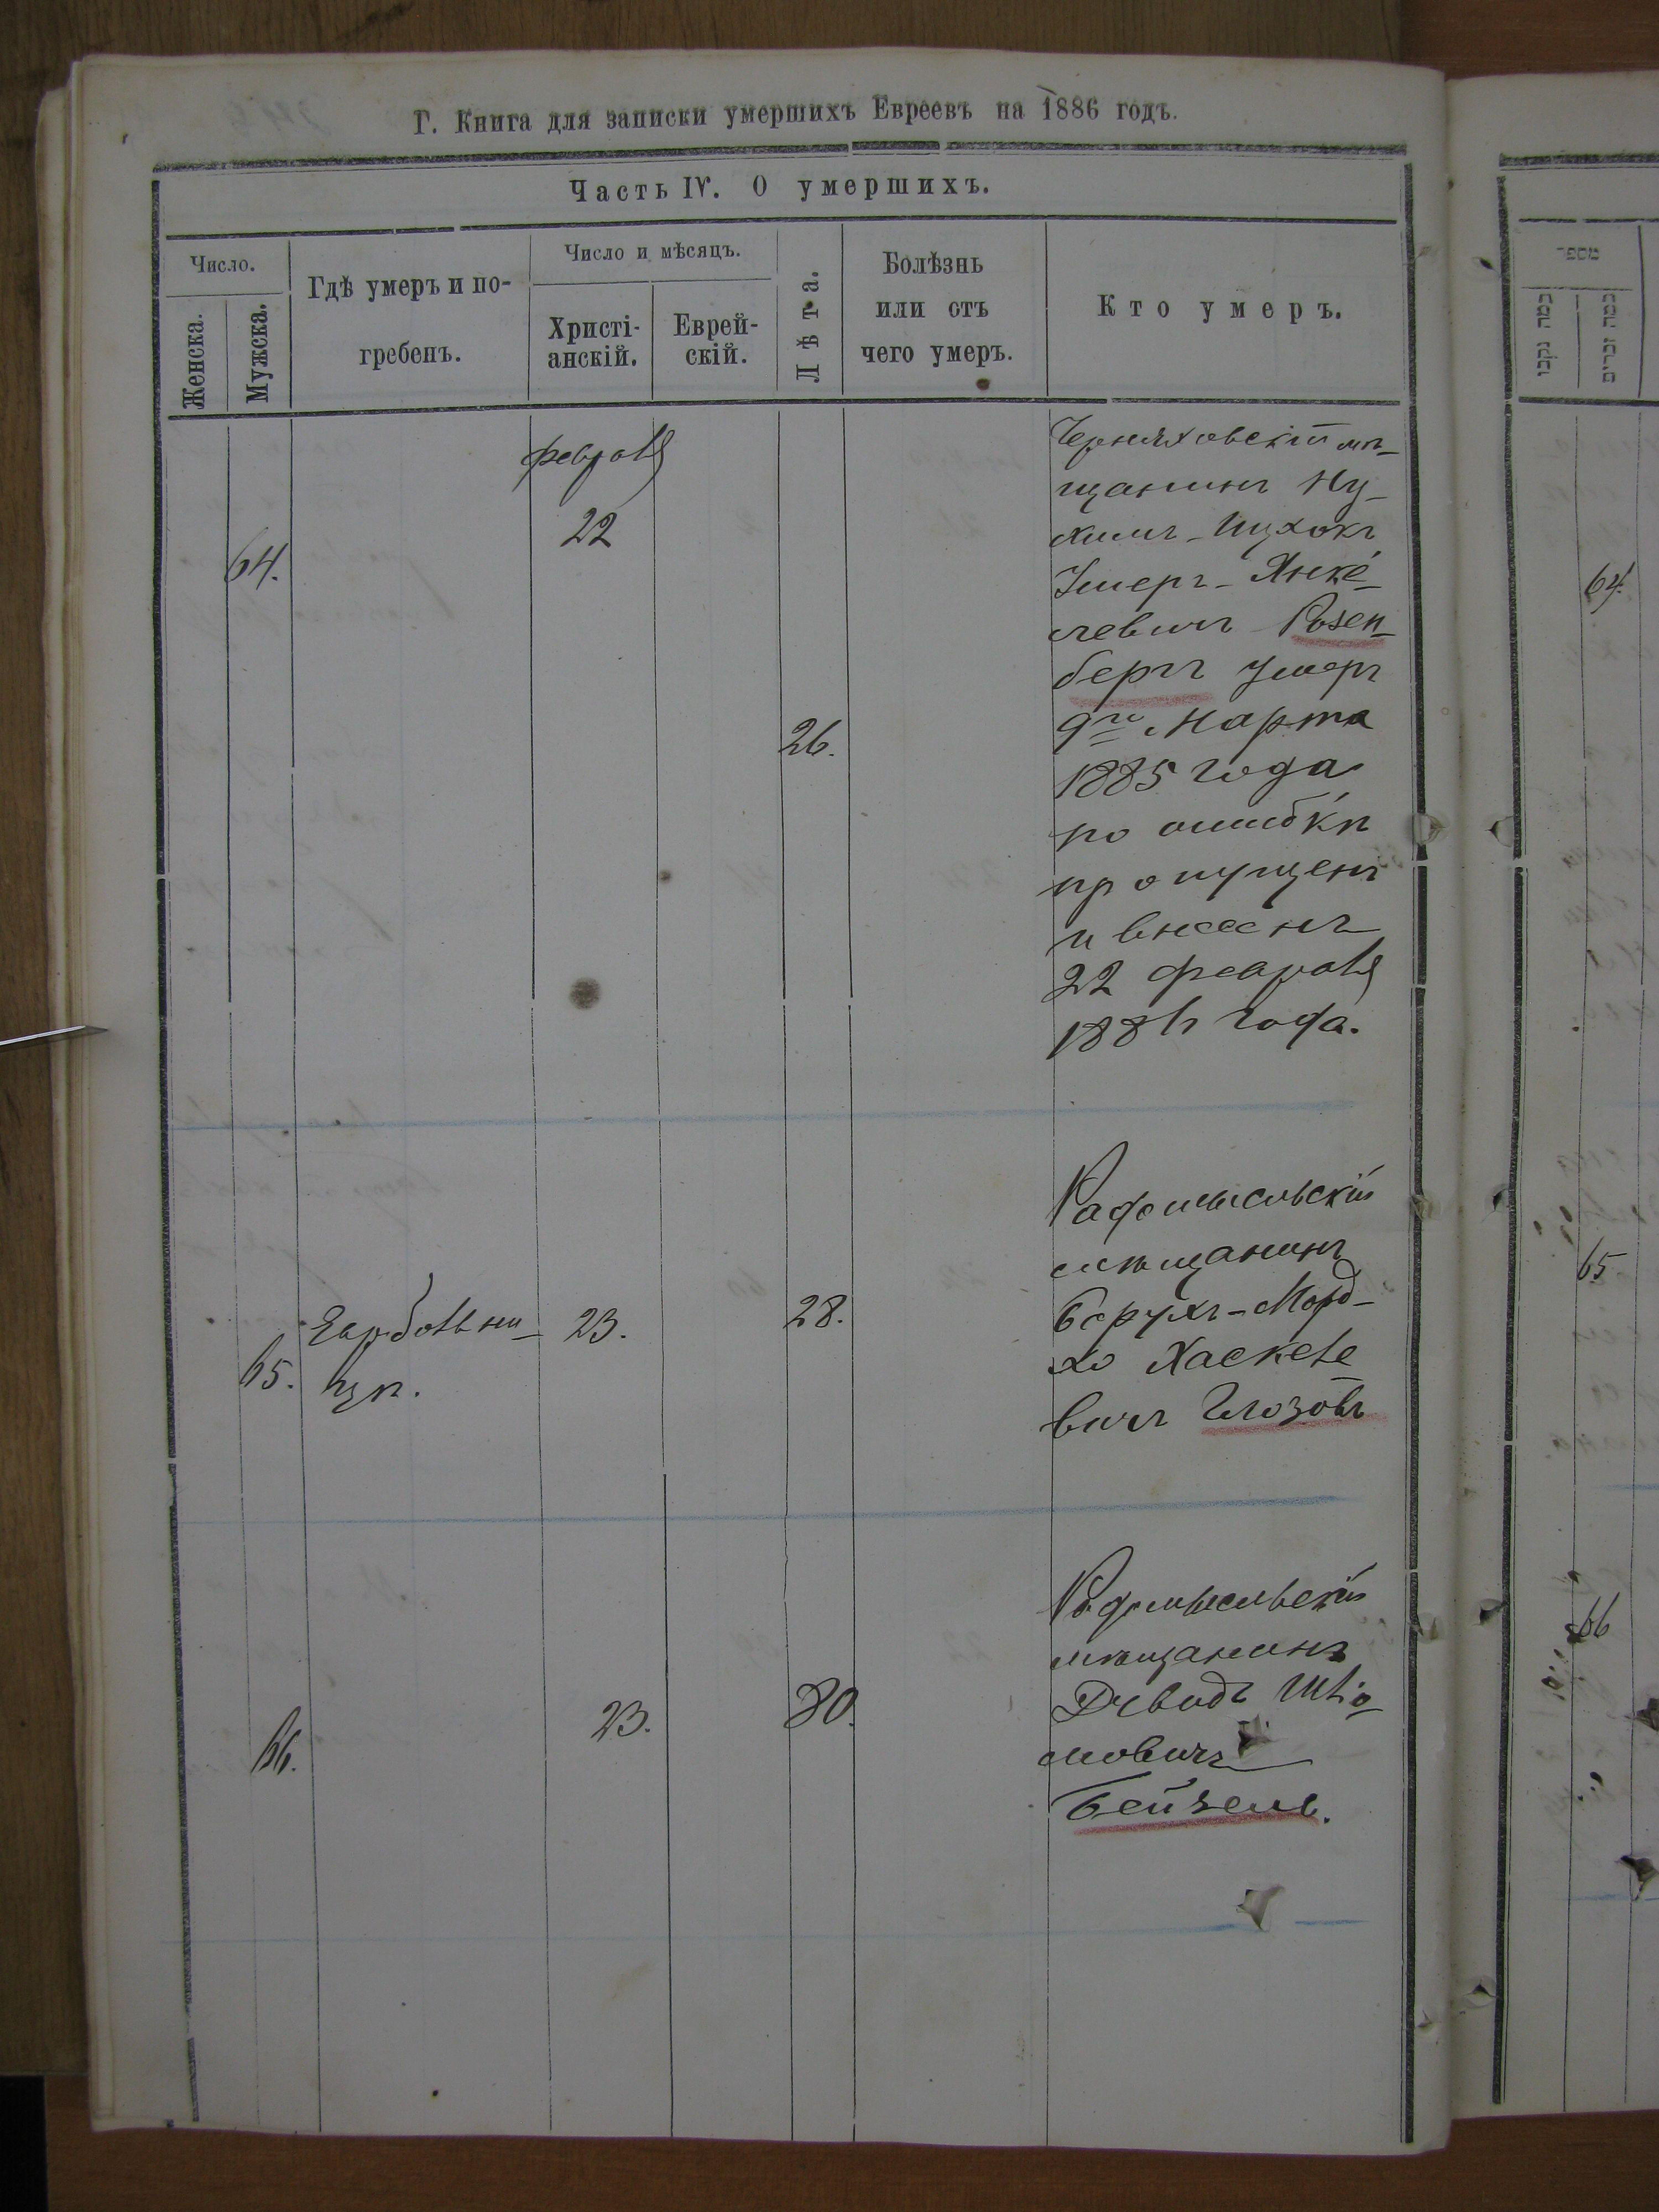 Г. Книга для записки умершихъ Евреевъ на 1886 годъ.
Часть IV. О умершихъ.
Число.
Женска.
Мужска.
Гдѣ умеръ и по-
гребенъ.
Число и мѣсяцъ.
Христі-
анскій.
Еврей-
скій.
Лѣта.
Болѣзнь
или отъ
чего умеръ.
Кто умеръ.
64.
февраля
22
26.
Черняховскій мѣ-
щанинъ Ну-
химъ-Ицхокъ
Умеръ - Янке-
левичъ Розен-
бергъ умеръ
9го Марта
1885 года
по ошибкѣ
пропущенъ
и внесенъ
22 февраля
1886 года.
65.
23.
28.
Радомысльскій
мѣщанинъ
Борухъ-Морд-
хо Хаскеле
вичъ Глозовъ
66.
23.
80.
Радомысльскій
мѣщанинъ
Давидъ Шліо-
мовичъ
Бейзель.
64.
65
66